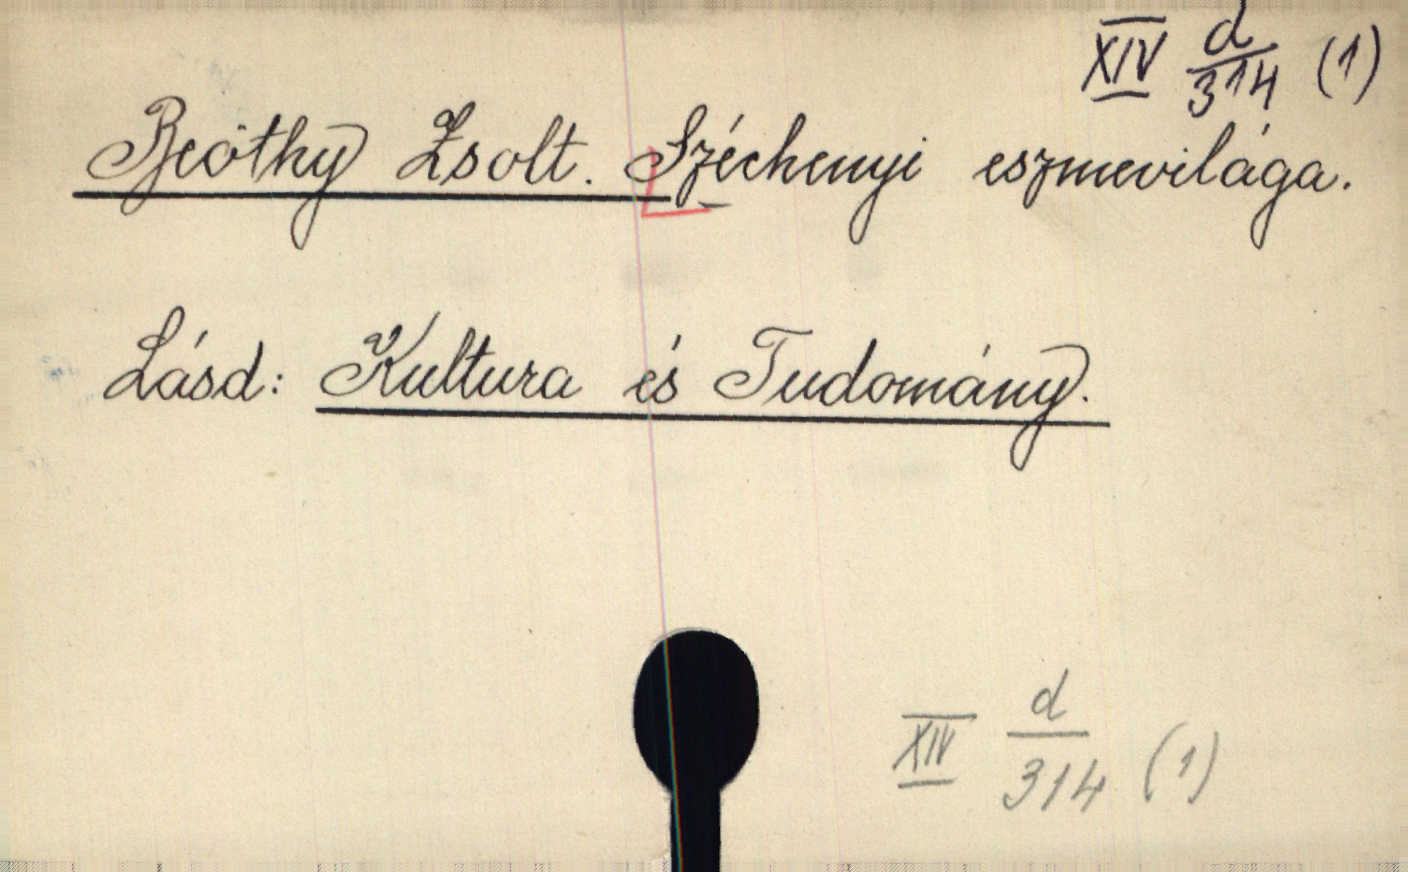 XIV d/314 (1)
Beöthy Zsolt. Széchenyi eszmevilága.
Lásd: Kultura és Tudomány.
XIV d/314 (1)